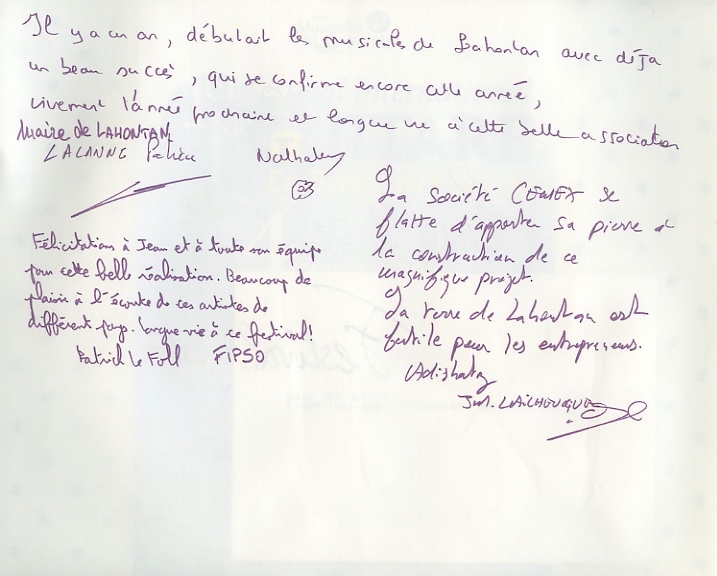 Il y a un an, débutait les musicales de Lahontan avec déja
un beau succès, qui se confirme encore cette année,
vivement l'année prochaine et longue vie à cette belle association
Maire de LAHONTAN
LALANNE
La Société CEMEX se
flatte d'apporter sa pierre à
la construction de ce
magnifique projet.
La terre de Lahontan est
fertile pour les entrepreneurs.
Adishatz
Félicitations à Jean et à toute son équipe
pour cette belle réalisation. Beaucoup de
plaisir à l'écoute de ces artistes de
différent pays. longue vie à ce festival!
Patrick Le Foll FIPSO